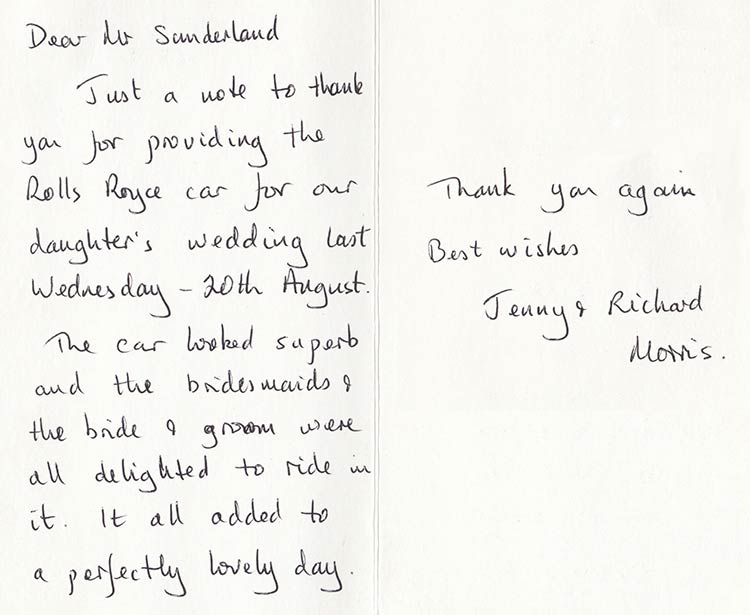 Dear Mr Sunderland
Just a note to thank
you for providing the
Rolls Royce car for our
daughter's wedding last
Wednesday – 20th August.
The car looked superb
and the bridesmaids &
the bride & groom were
all delighted to ride in
it. It all added to
a perfectly lovely day.
Thank you again
Best wishes
Jenny & Richard
Morris.